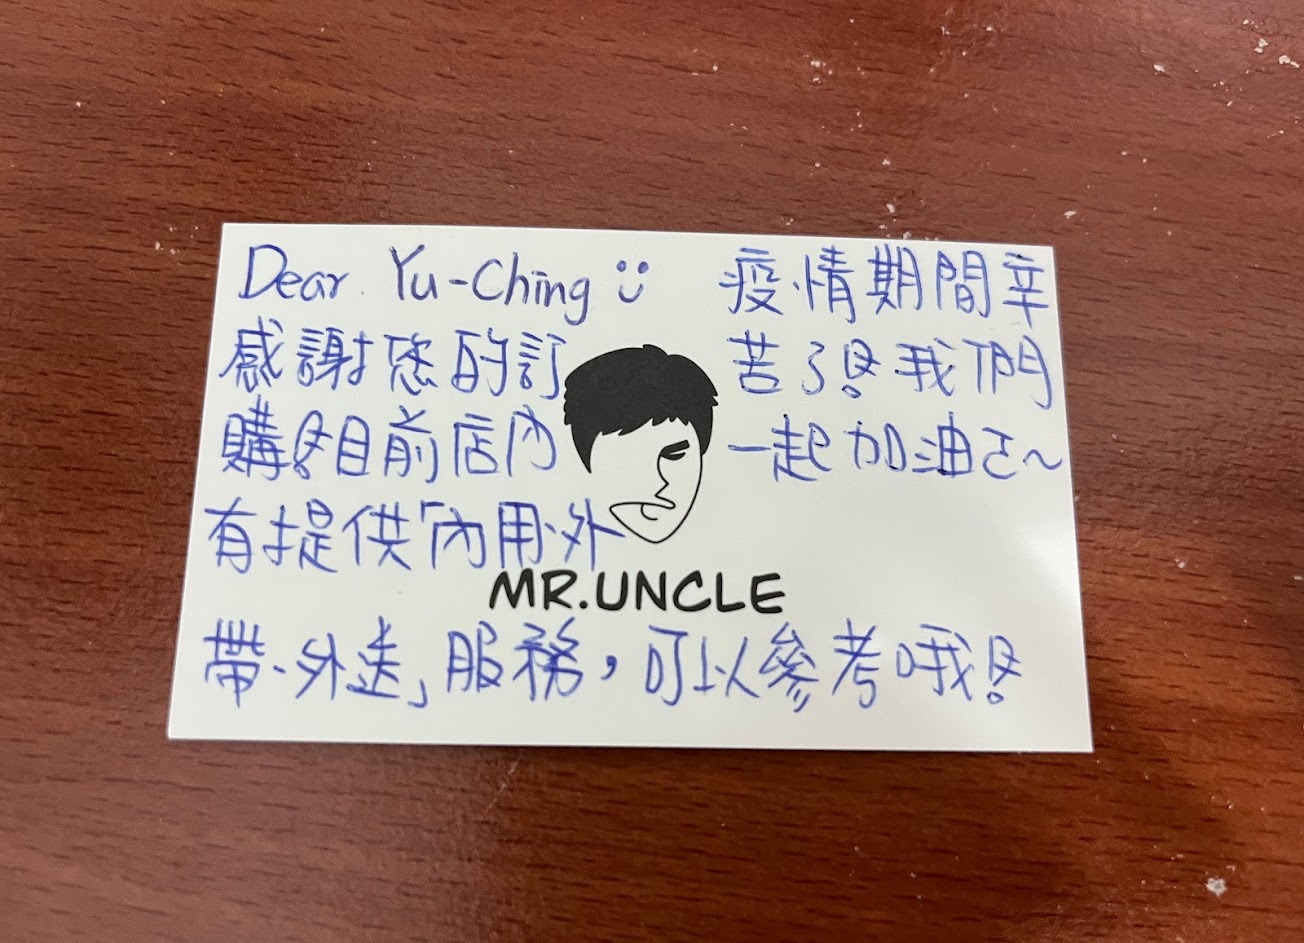 Dear Yu-Ching
感謝您的訂
購!目前店內
有提供「內用、外
帶、外送」服務，可以參考哦!
疫情期間辛
苦了!我們
一起加油~
MR.UNCLE